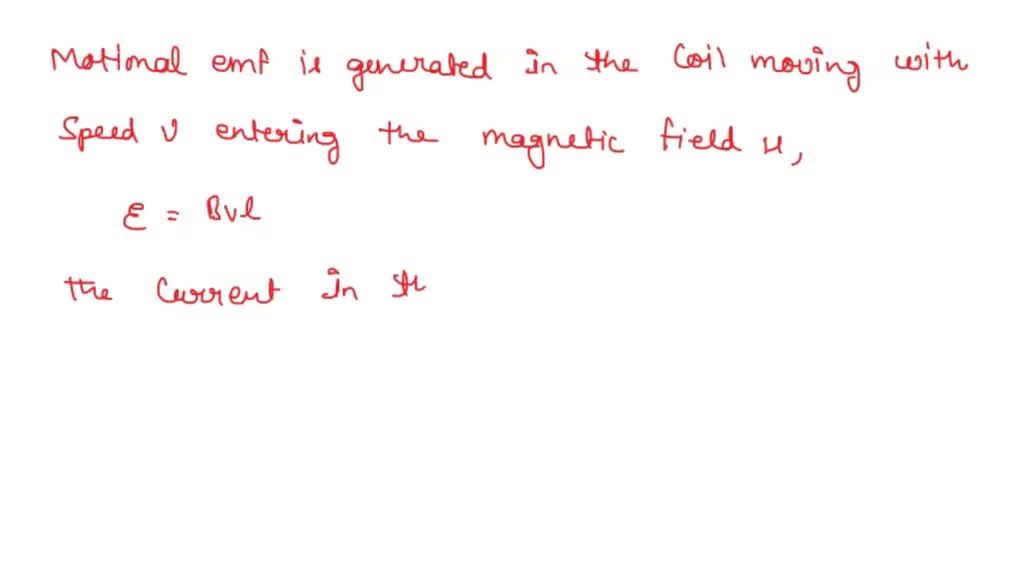 Motional emf is generated in the Coil moving with
Speed v entering the magnetic field is,
ε = Bvl
the Current In th